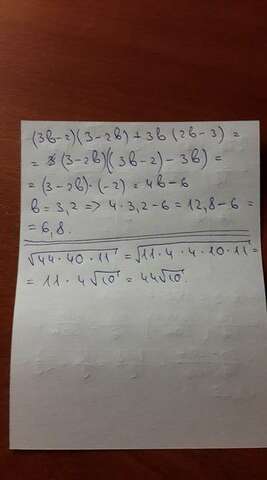 (3в-2)(3-2в) + 3в (2в-3) =
= (3-2в)((3в-2) - 3в) =
= (3-2в)·(-2) = 4в-6
в = 3,2 => 4·3,2-6 = 12,8-6 =
= 6,8.
√44·40·11 = √11·4·4·10·11 =
= 11·4√10 = 44√10.